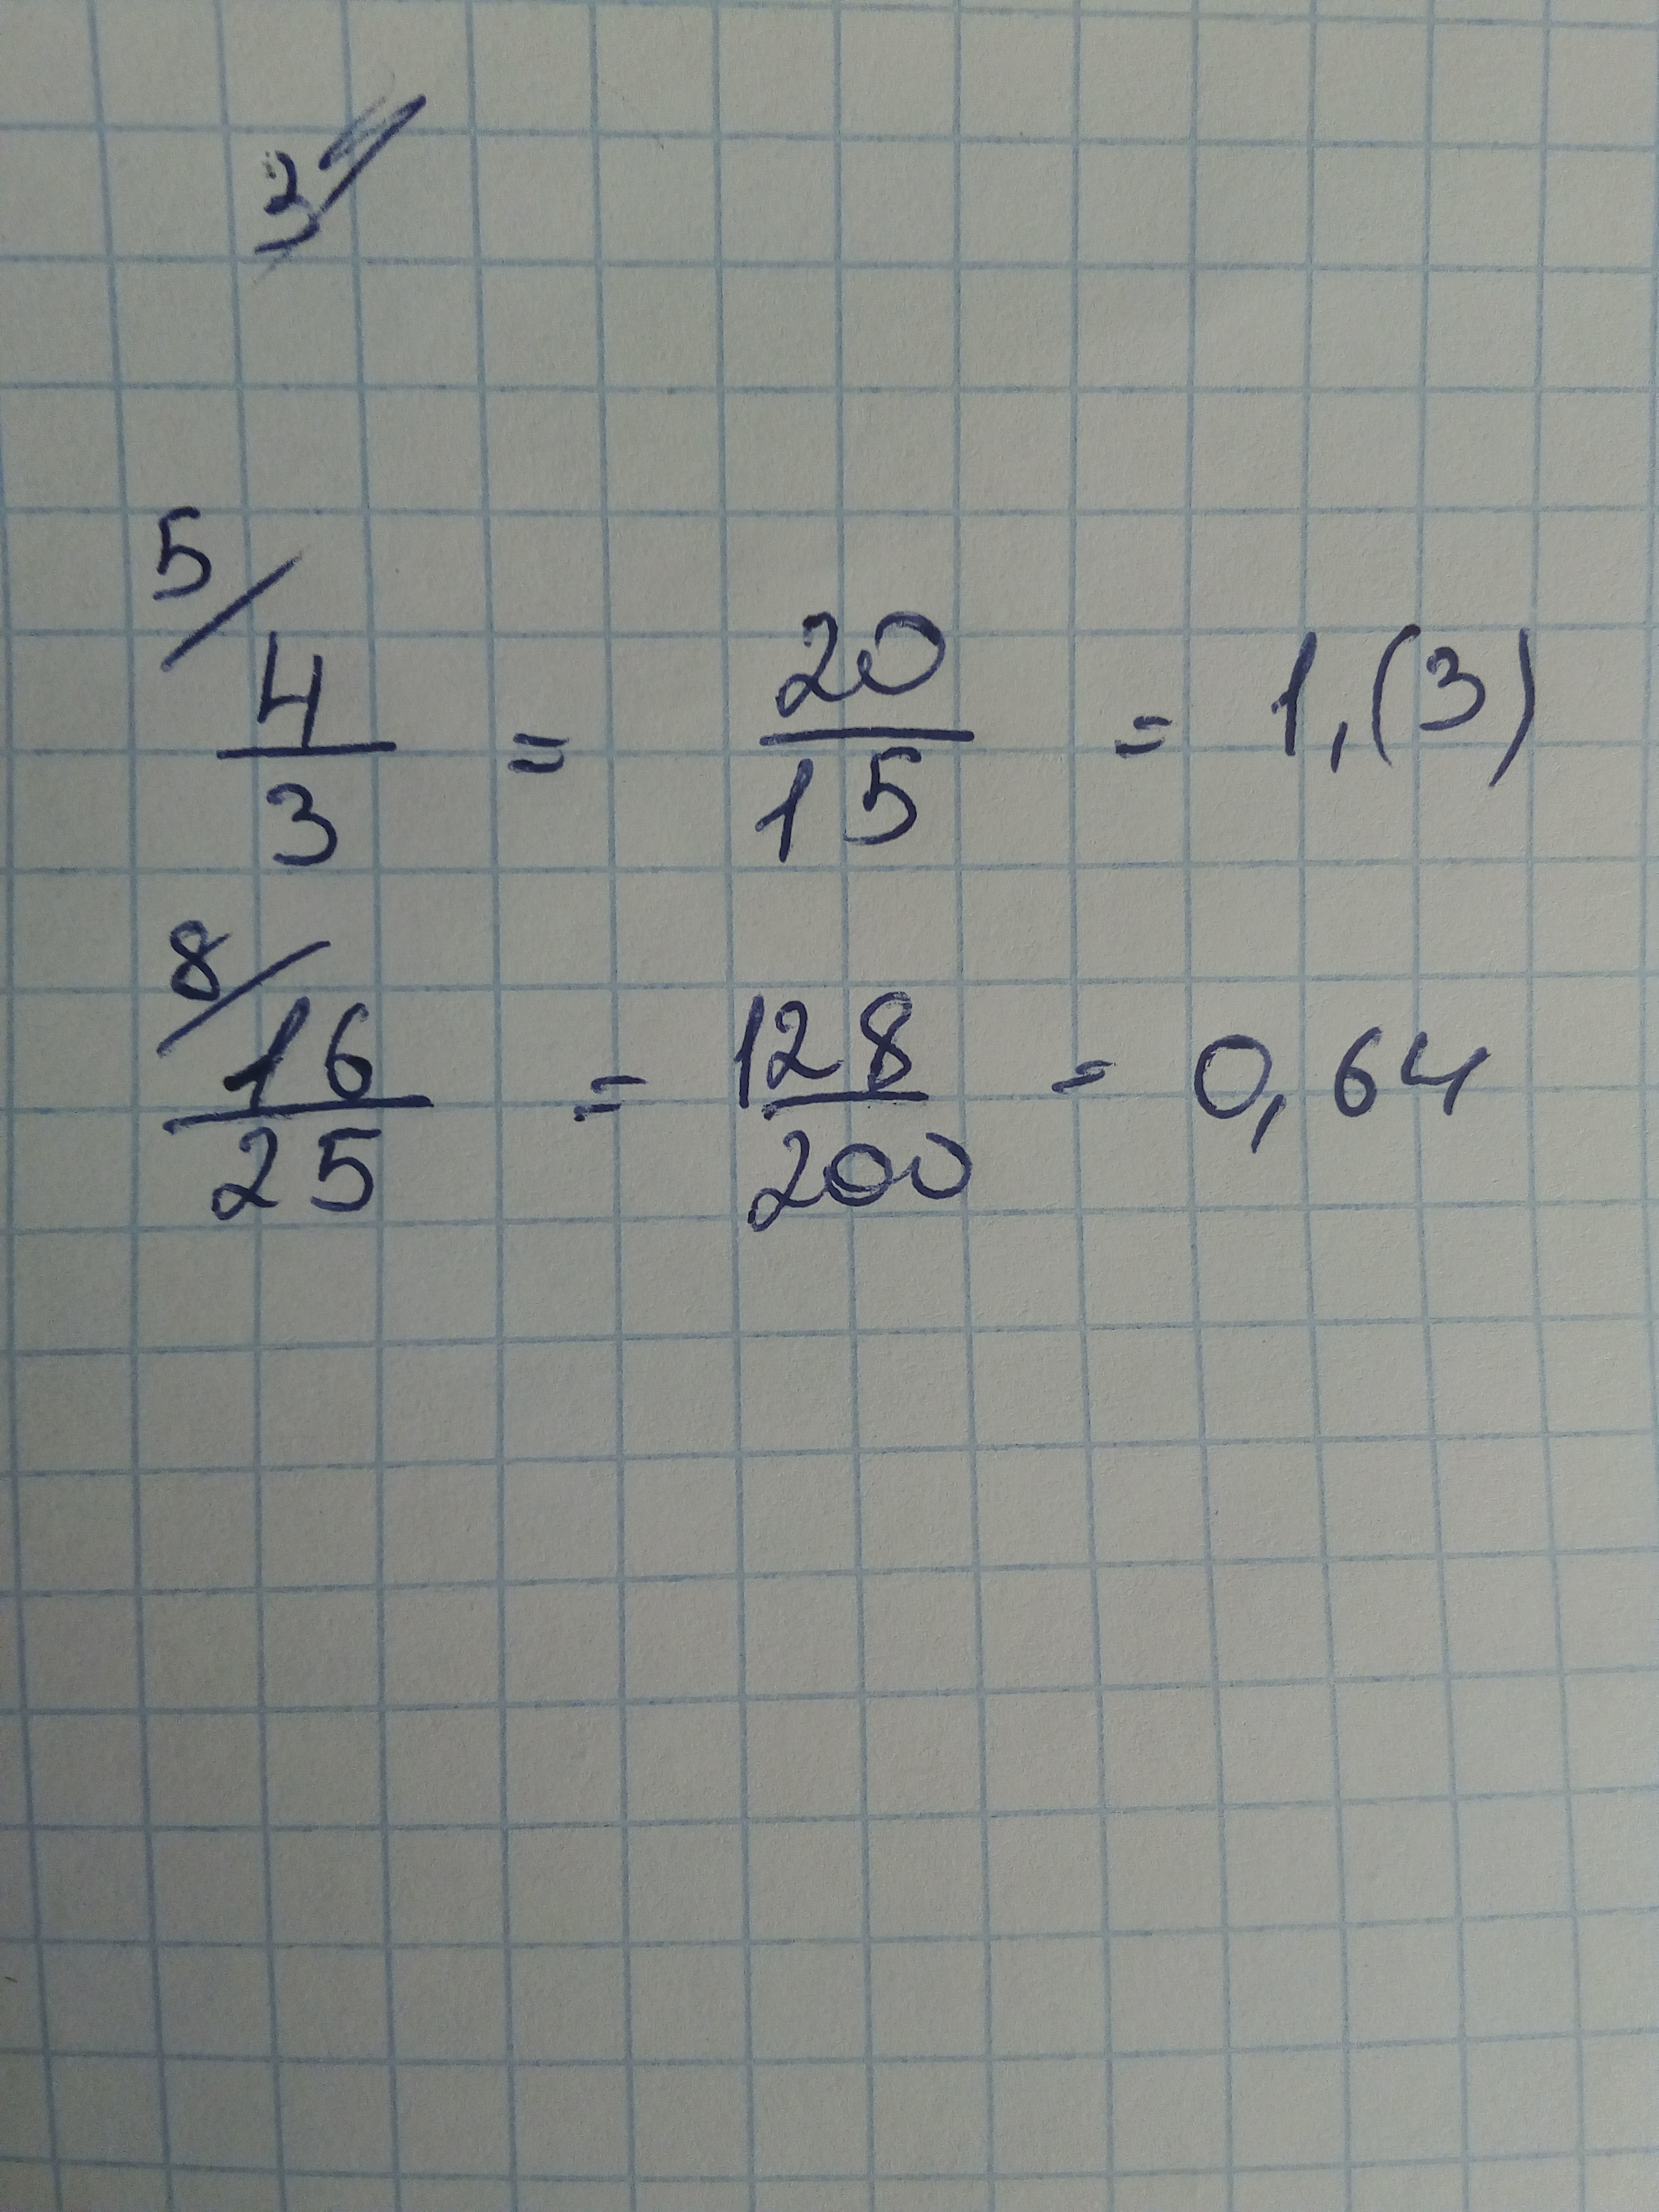 5/ 4/3 = 20/15 = 1,(3)
8/ 16/25 = 128/200 = 0,64